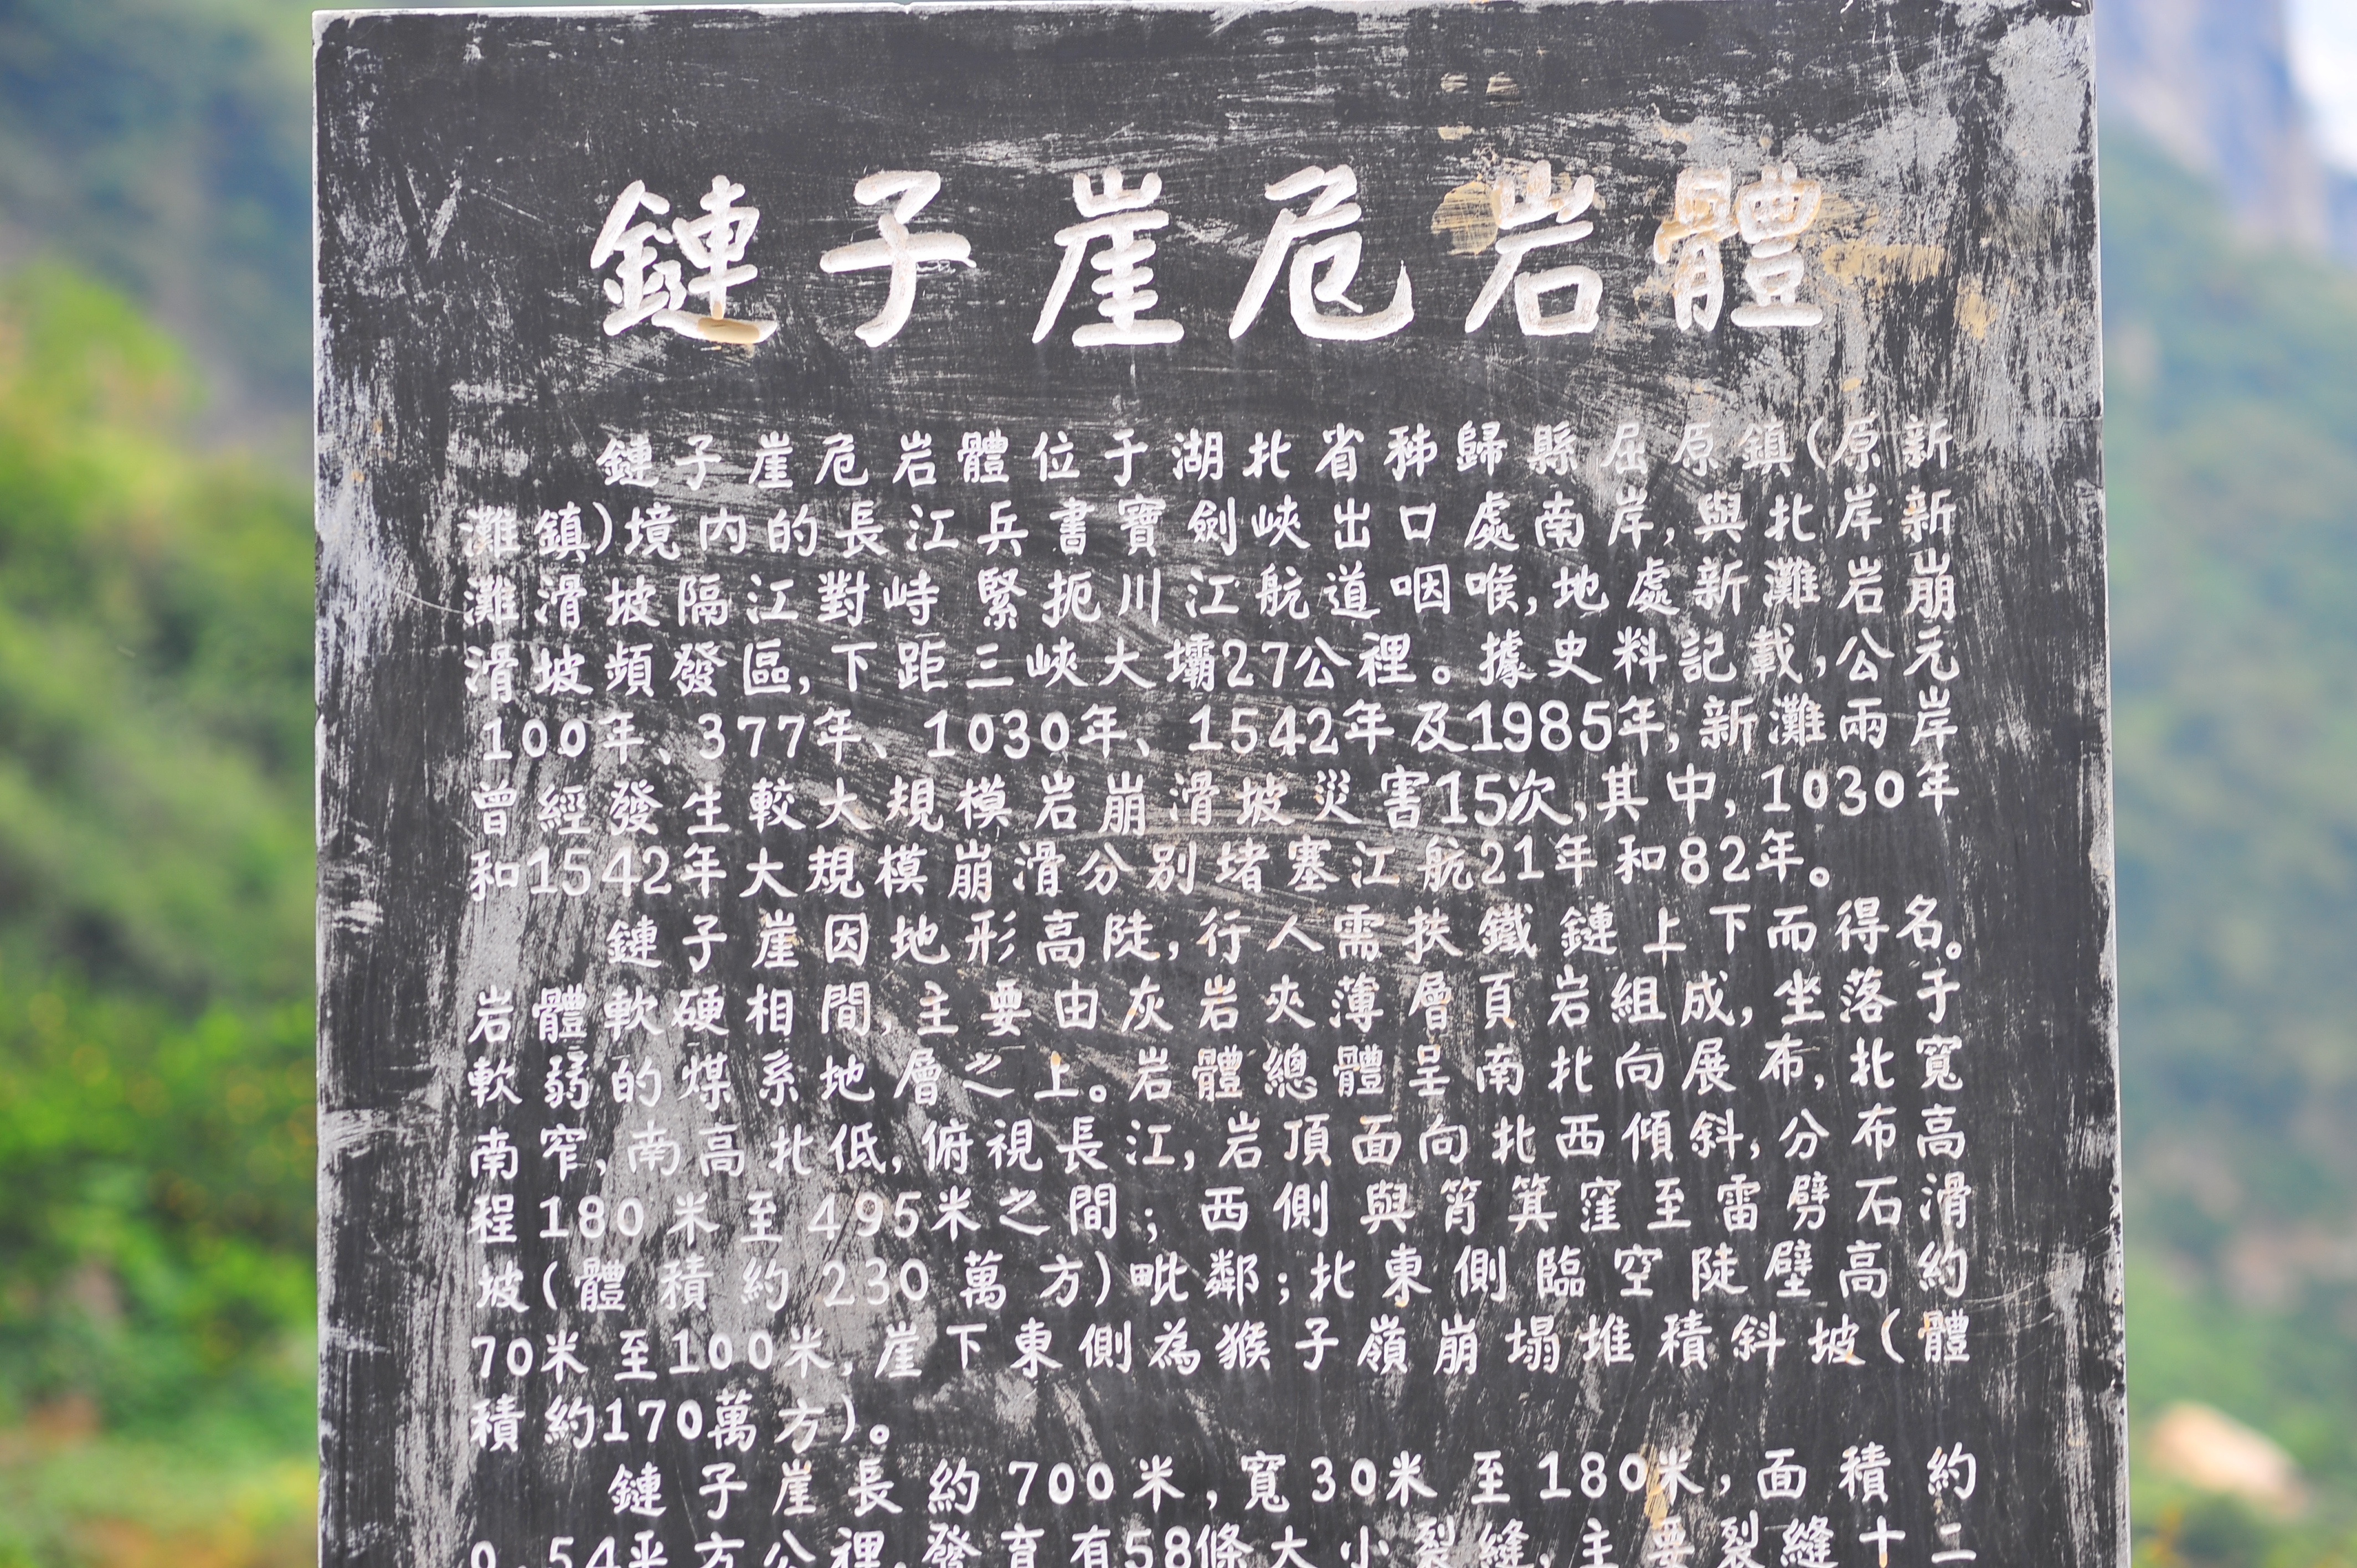 鏈子崖危岩體
鏈子崖危岩體位于湖北省秭歸縣屈原鎮(原新
灘鎮)境内的長江兵書寶劍峽出口處南岸,與北岸新
灘滑坡隔江對峙緊扼川江航道咽喉,地處新灘岩崩
滑坡頻發區,下距三峽大壩27公裡。據史料記載,公元
100年、377年、1030年、1542年及1985年,新灘兩岸
曾經發生較大規模岩崩滑坡災害15次,其中,1030年
和1542年大規模崩滑分別堵塞江航21年和82年。
鏈子崖因地形高陡,行人需扶鐵鏈上下而得名。
岩體軟硬相間,主要由灰岩夾薄層頁岩組成,坐落于
軟弱的煤系地層之上。岩體總體呈南北向展布,北寬
南窄,南高北低,俯視長江,岩頂面向北西傾斜,分布高
程180米至495米之間;西側與筲箕窪至雷劈石滑
坡(體積約230萬方)毗鄰;北東側臨空陡壁高約
70米至100米,崖下東側為猴子嶺崩塌堆積斜坡(體
積約170萬方)。
鏈子崖長約700米,寬30米至180米,面積約
0.54平方公裡,發育有58條大小裂縫,主要裂縫十二